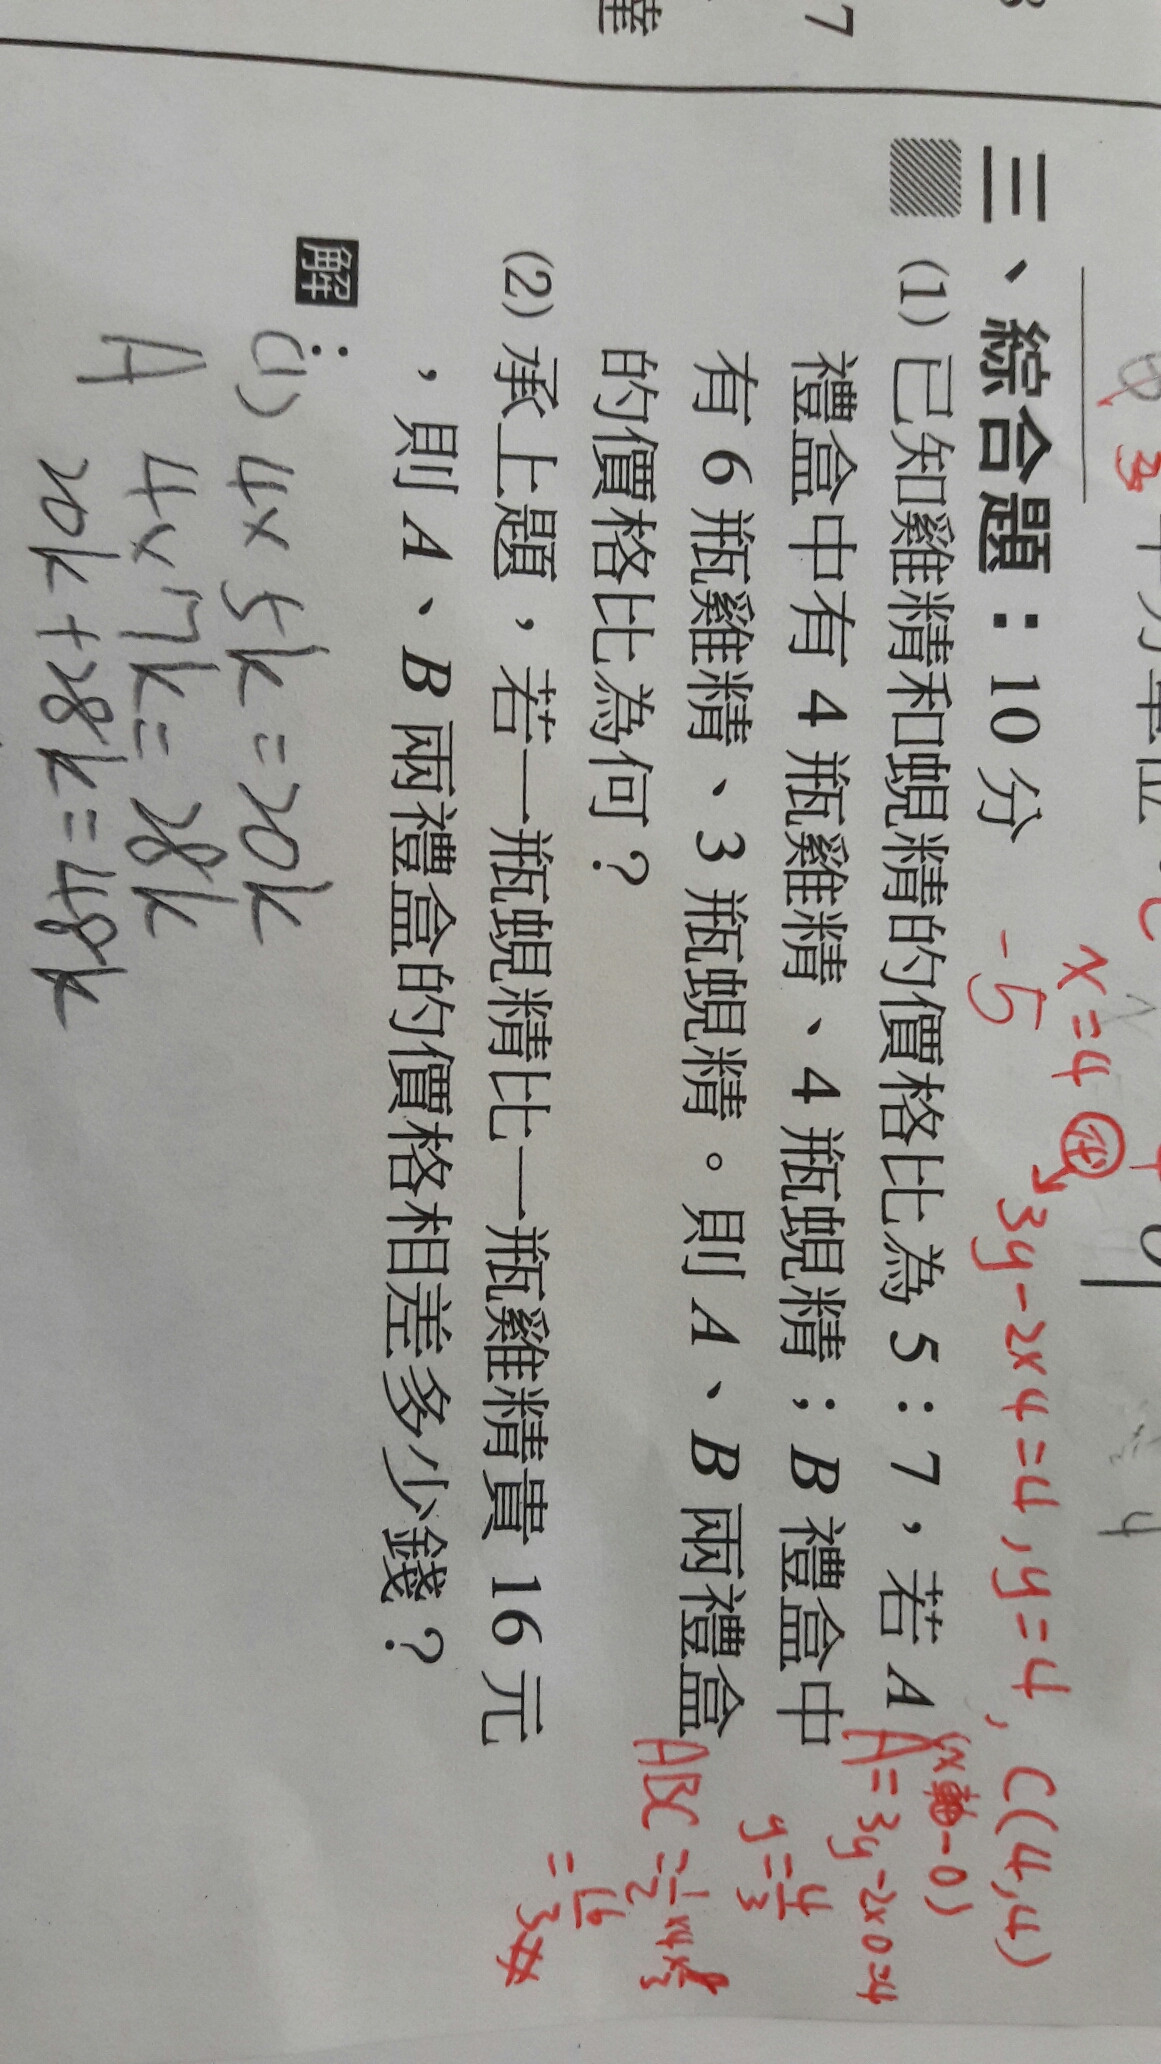 7
三、綜合題：10分
-5
x=4 代 3y-2x4=4, y=4, C(4,4)
(1) 已知雞精和蜆精的價格比為 5：7，若 A
禮盒中有 4 瓶雞精、4 瓶蜆精；B 禮盒中
有 6 瓶雞精、3 瓶蜆精。則 A、B 兩禮盒
的價格比為何？
A=3y-2x0=4
y=4/3
ABC=1/2x4x
=16/3
(2) 承上題，若一瓶蜆精比一瓶雞精貴 16 元
，則 A、B 兩禮盒的價格相差多少錢？
解：
(1) 4x5k=20k
A 4x7k=28k
20k+28k=48k